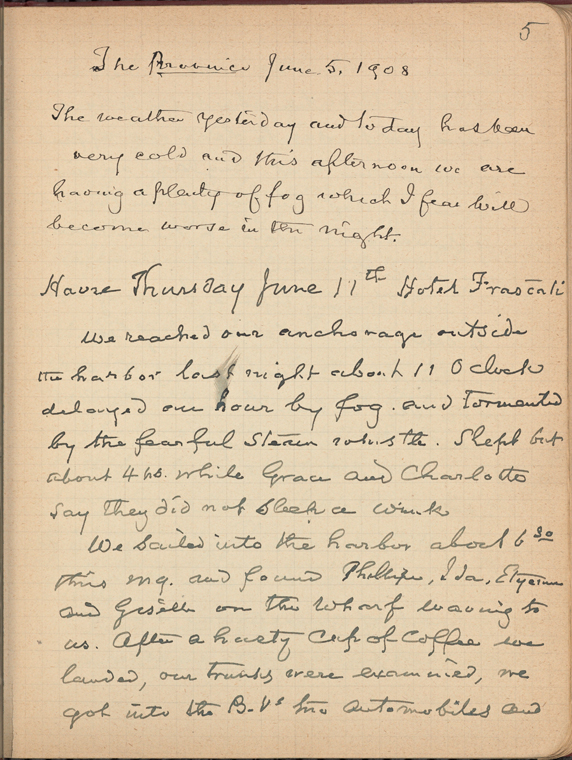 5
The Provence June 5, 1908
The weather yesterday and today has been
very cold and this afternoon we are
having a plenty of fog which I fear will
become worse in the night.
Havre Thursday June 11th Hotel Frascati
We reached our anchorage outside
the harbor last night about 11 O clock
delayed an hour by fog. and tormented
by the fearful steam whistle. Slept but
about 4 hs. while Grace and Charlotte
say they did not sleep a wink
We sailed into the harbor about 6 30
this mg. and found Phillipe, Ida, Etienne
and Gisèle on the wharf waving to
us. After a hasty cup of coffee we
landed, our trunks were examined, we
got into the B-V's two automobiles and